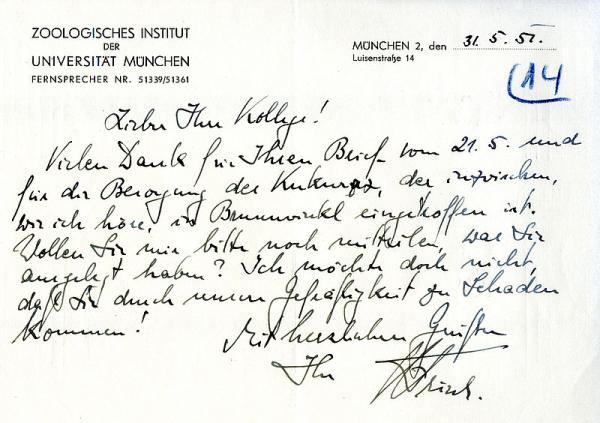 ZOOLOGISCHES INSTITUT
DER
UNIVERSITÄT MÜNCHEN
FERNSPRECHER NR. 51339/51361
MÜNCHEN 2, den 31. 5. 51.
Luisenstraße 14
(14
Lieber Herr Kollege!
Vielen Dank für Ihren Brief vom 21. 5. und
für die Besorgung des Kukuruz, der inzwischen,
wie ich höre, in Brunnwinkl eingetroffen ist.
Wollen Sie mir bitte noch mitteilen, was Sie
ausgelegt haben? Ich möchte doch nicht,
daß Sie durch unsere Gefräßigkeit zu Schaden
kommen!
Mit herzlichen Grüßen
Ihr
Frisch.